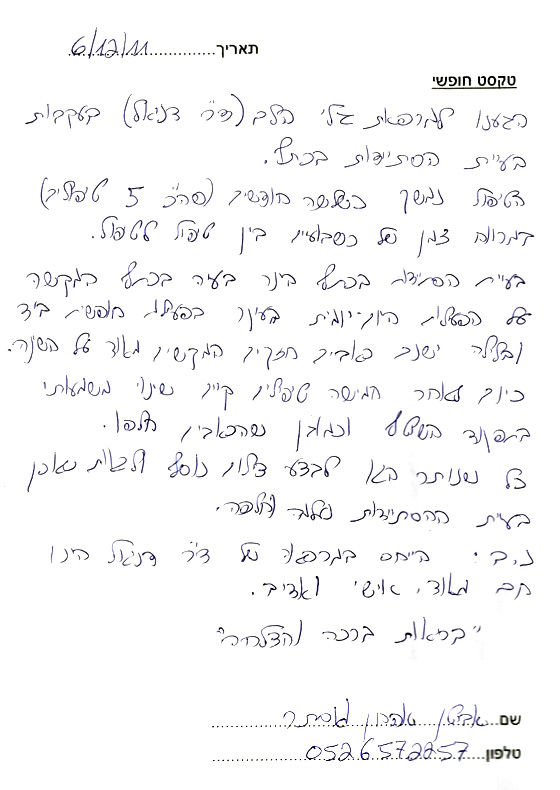 תאריך 6/12/11
טקסט חופשי
הגענו למרפאת גלי הלב (ד״ר דניאל) בעקבות
בעיית הסתיידות בכתף.
הטיפול נמשך כשלושה חודשים (סה״כ 5 טיפולים)
במרווח זמן של כשבועיים בין טיפול לטיפול.
בעיית הסתיידות בכתף הינה בעיה בכתף המקשה
על הפעילות היום-יומית בעיקר בפעילות חופשית ביד
ובלילה ישנם כאבים חזקים המקשים מאוד על השינה.
כיום לאחר חמישה טיפולים קיים שינוי משמעותי
בתפקוד השוטף וכמובן שהכאבים חלפו.
כל שנותר הוא לבצע צילום נוסף ולראות שאכן
בעיית ההסתיידות נעלמה וחלפה.
נ.ב. היחס במרפאה של ד״ר דניאל הינו
חם מאוד, אישי ואדיב.
״בריאות ברכה והצלחה״
שם אהרון
טלפון 0526572257